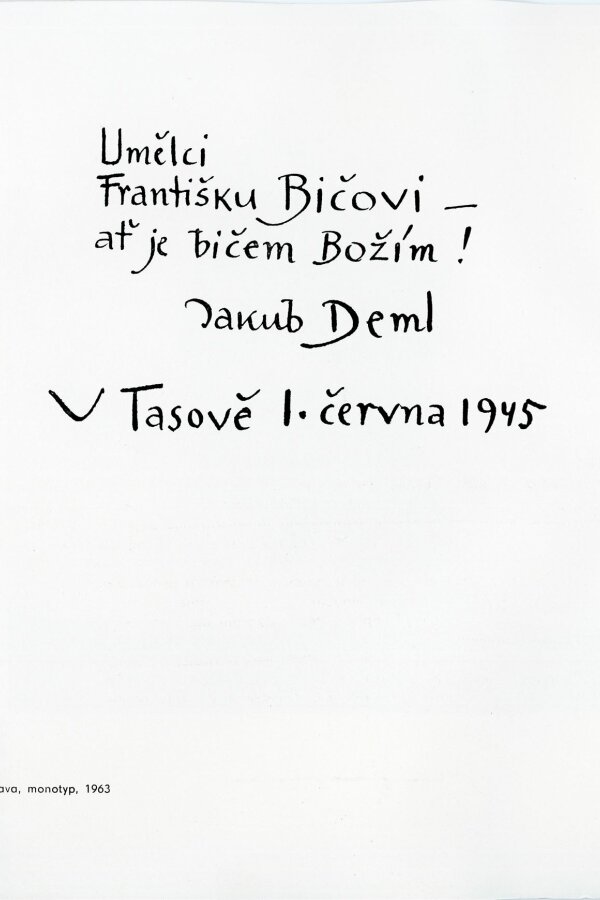 Umělci
Františku Bičovi —
ať je bičem Božím !
Jakub Deml
V Tasově 1. června 1945
ava, monotyp, 1963